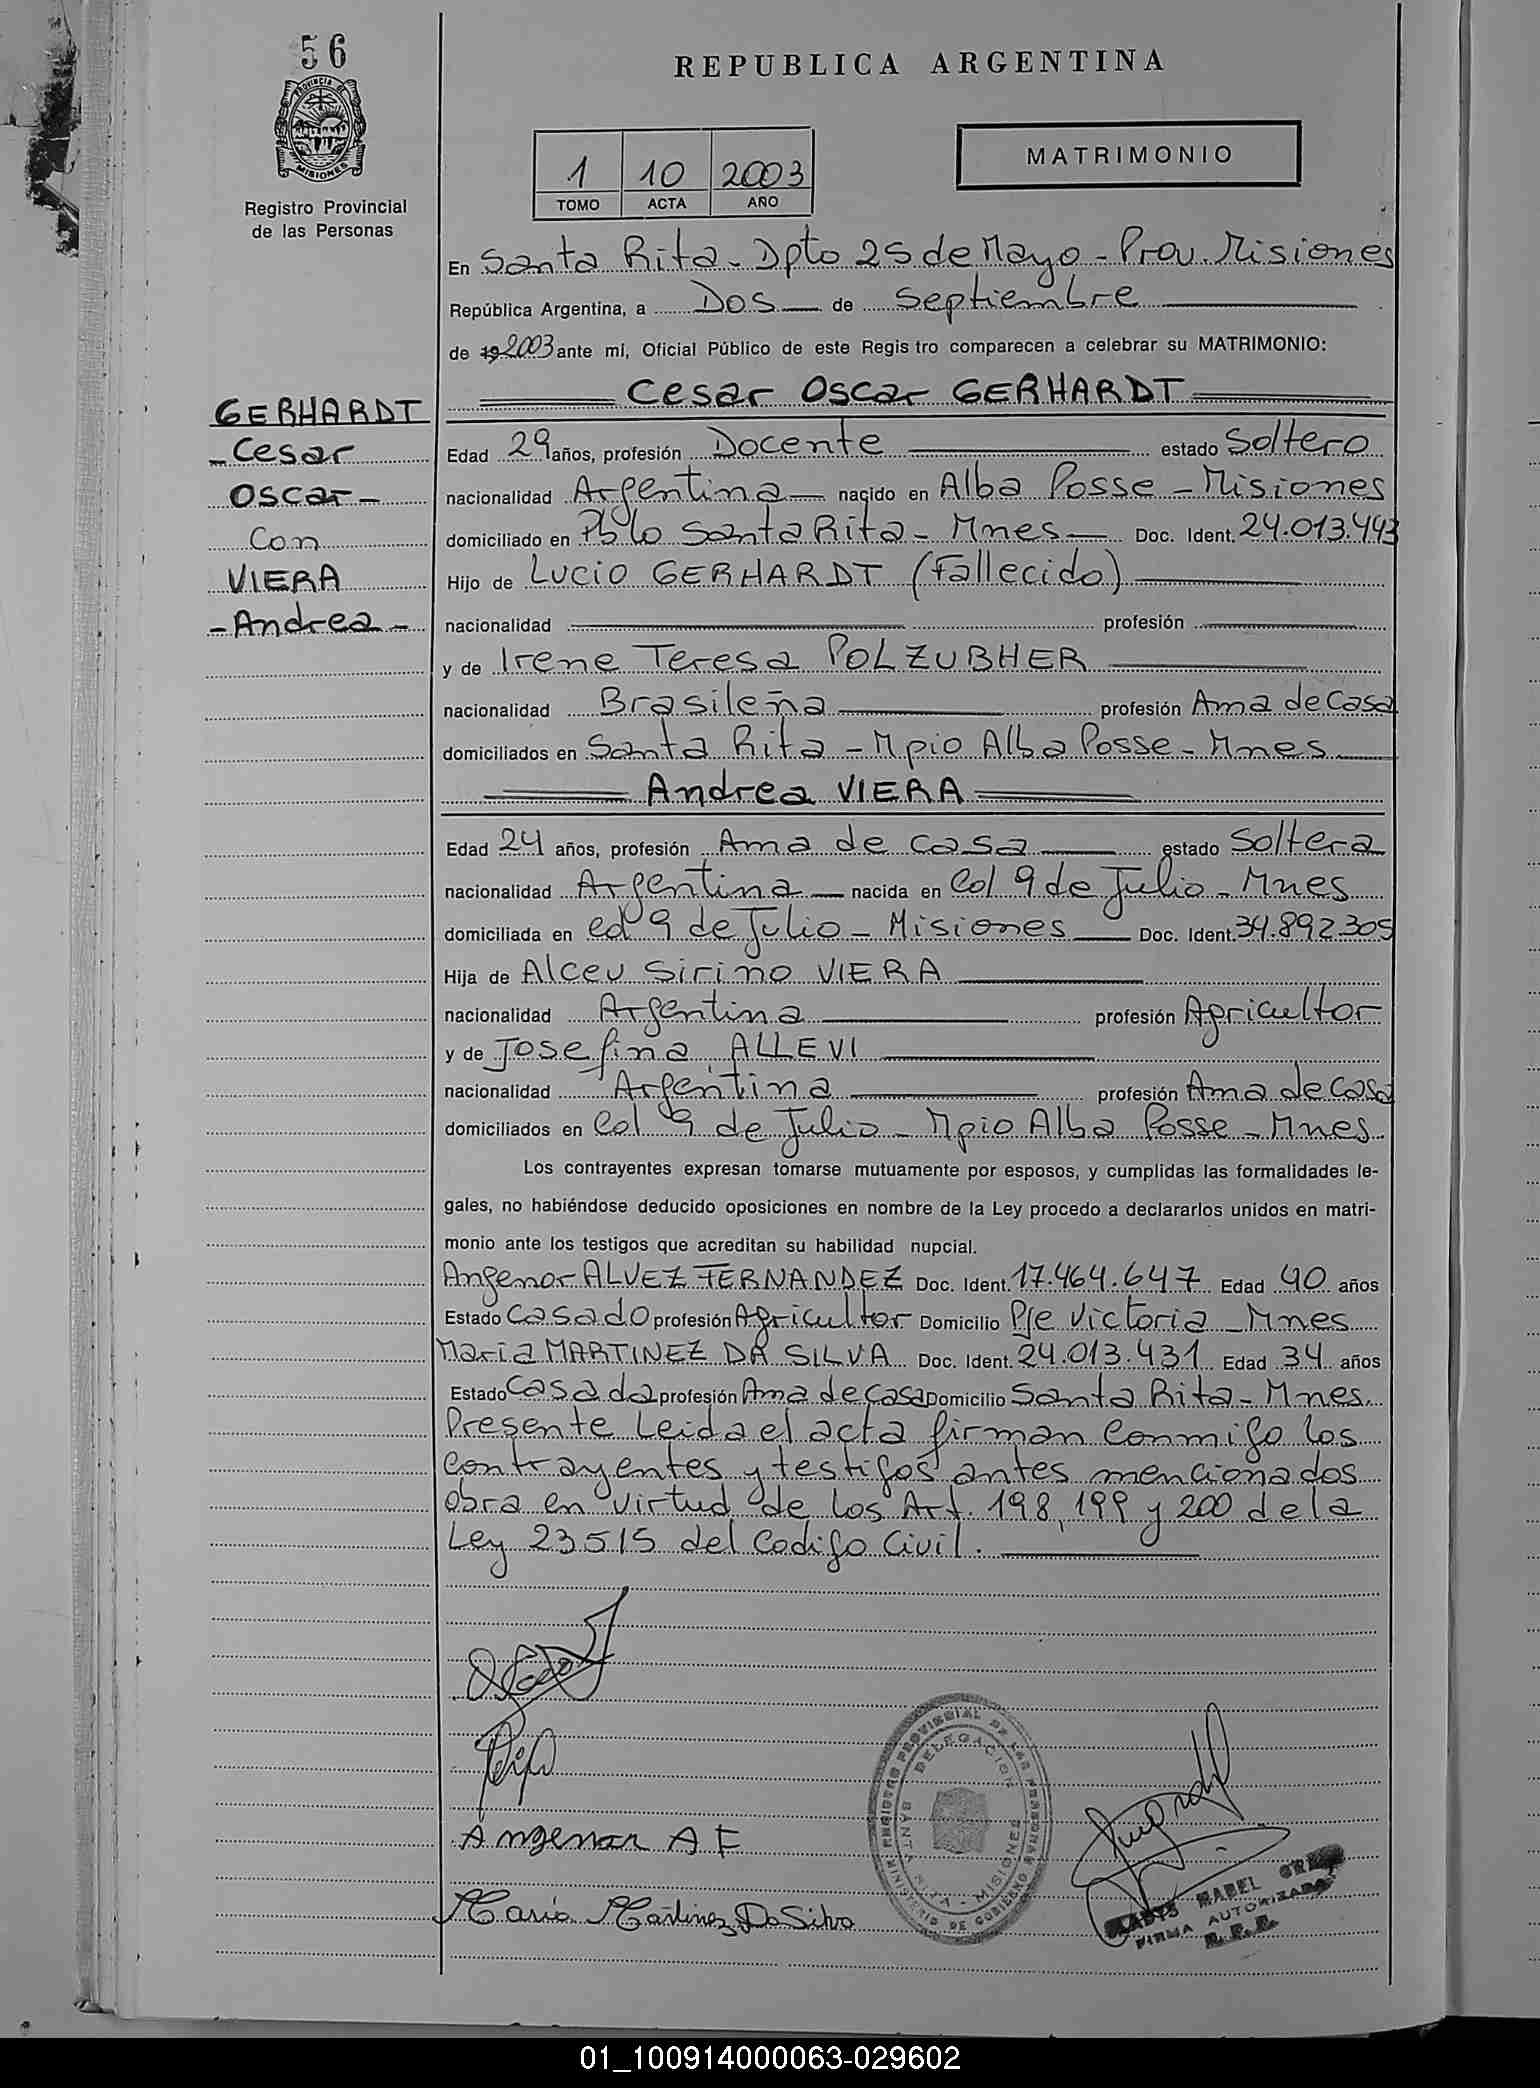 56
REPUBLICA ARGENTINA
PROVINCIA DE
MISIONES
Registro Provincial
de las Personas
1 10 2003
TOMO ACTA AÑO
MATRIMONIO
En Santa Rita - Dpto 25 de Mayo - Prov. Misiones
República Argentina, a Dos de Septiembre
de 19 2003 ante mí, Oficial Público de este Regis tro comparecen a celebrar su MATRIMONIO:
Cesar Oscar GERHARDT
GERHARDT
- Cesar
Oscar -
Con
VIERA
- Andrea -
Edad 29 años, profesión Docente estado Soltero
nacionalidad Argentina nacido en Alba Posse - Misiones
domiciliado en Pblo Santa Rita - Mnes Doc. Ident. 24.013.443
Hijo de Lucio GERHARDT (Fallecido)
nacionalidad profesión
y de Irene Teresa POLZUBHER
nacionalidad Brasileña profesión Ama de Casa
domiciliados en Santa Rita - Mpio Alba Posse - Mnes
Andrea VIERA
Edad 24 años, profesión Ama de casa estado Soltera
nacionalidad Argentina nacida en Col 9 de Julio - Mnes
domiciliada en col 9 de Julio - Misiones Doc. Ident. 34.892.305
Hija de Alceu Sirino VIERA
nacionalidad Argentina profesión Agricultor
y de Josefina ALLEVI
nacionalidad Argentina profesión Ama de Casa
domiciliados en Col 9 de Julio - Mpio Alba Posse - Mnes.
Los contrayentes expresan tomarse mutuamente por esposos, y cumplidas las formalidades le-
gales, no habiéndose deducido oposiciones en nombre de la Ley procedo a declararlos unidos en matri-
monio ante los testigos que acreditan su habilidad nupcial.
Angenor ALVEZ FERNANDEZ Doc. Ident. 17.464.647 Edad 40 años
Estado Casado profesión Agricultor Domicilio Pje Victoria - Mnes
Maria MARTINEZ DA SILVA Doc. Ident. 24.013.431 Edad 34 años
Estado Casada profesión Ama de Casa Domicilio Santa Rita - Mnes.
Presente Leida el acta firman conmigo los
contrayentes y testigos antes mencionados
obra en virtud de los Art. 198, 199 y 200 de la
Ley 23515 del Codigo Civil.
Angenor A F
Maria Martinez Da Silva
MINISTERIO DE GOBIERNO REGISTRO PROVINCIAL DE LAS PERSONAS
DELEGACION SANTA RITA - MISIONES
GLADYS MABEL
FIRMA AUTORIZADA
R. P. P.
01_100914000063-029602